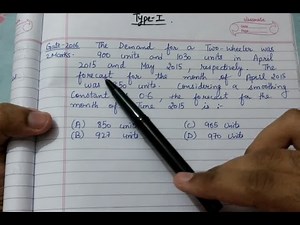 Type-I
Gate-2016 The Demand for a Two-wheeler was
2 Marks- 900 units and 1030 units in April
2015 and May 2015, respectively. The
forecast for the month of April 2015
was 850 units. Considering a smoothing
Constant 0.6, the forecast for the
month of June 2015 is :-
(A) 850 units (C) 965 units
(B) 927 units (D) 970 units